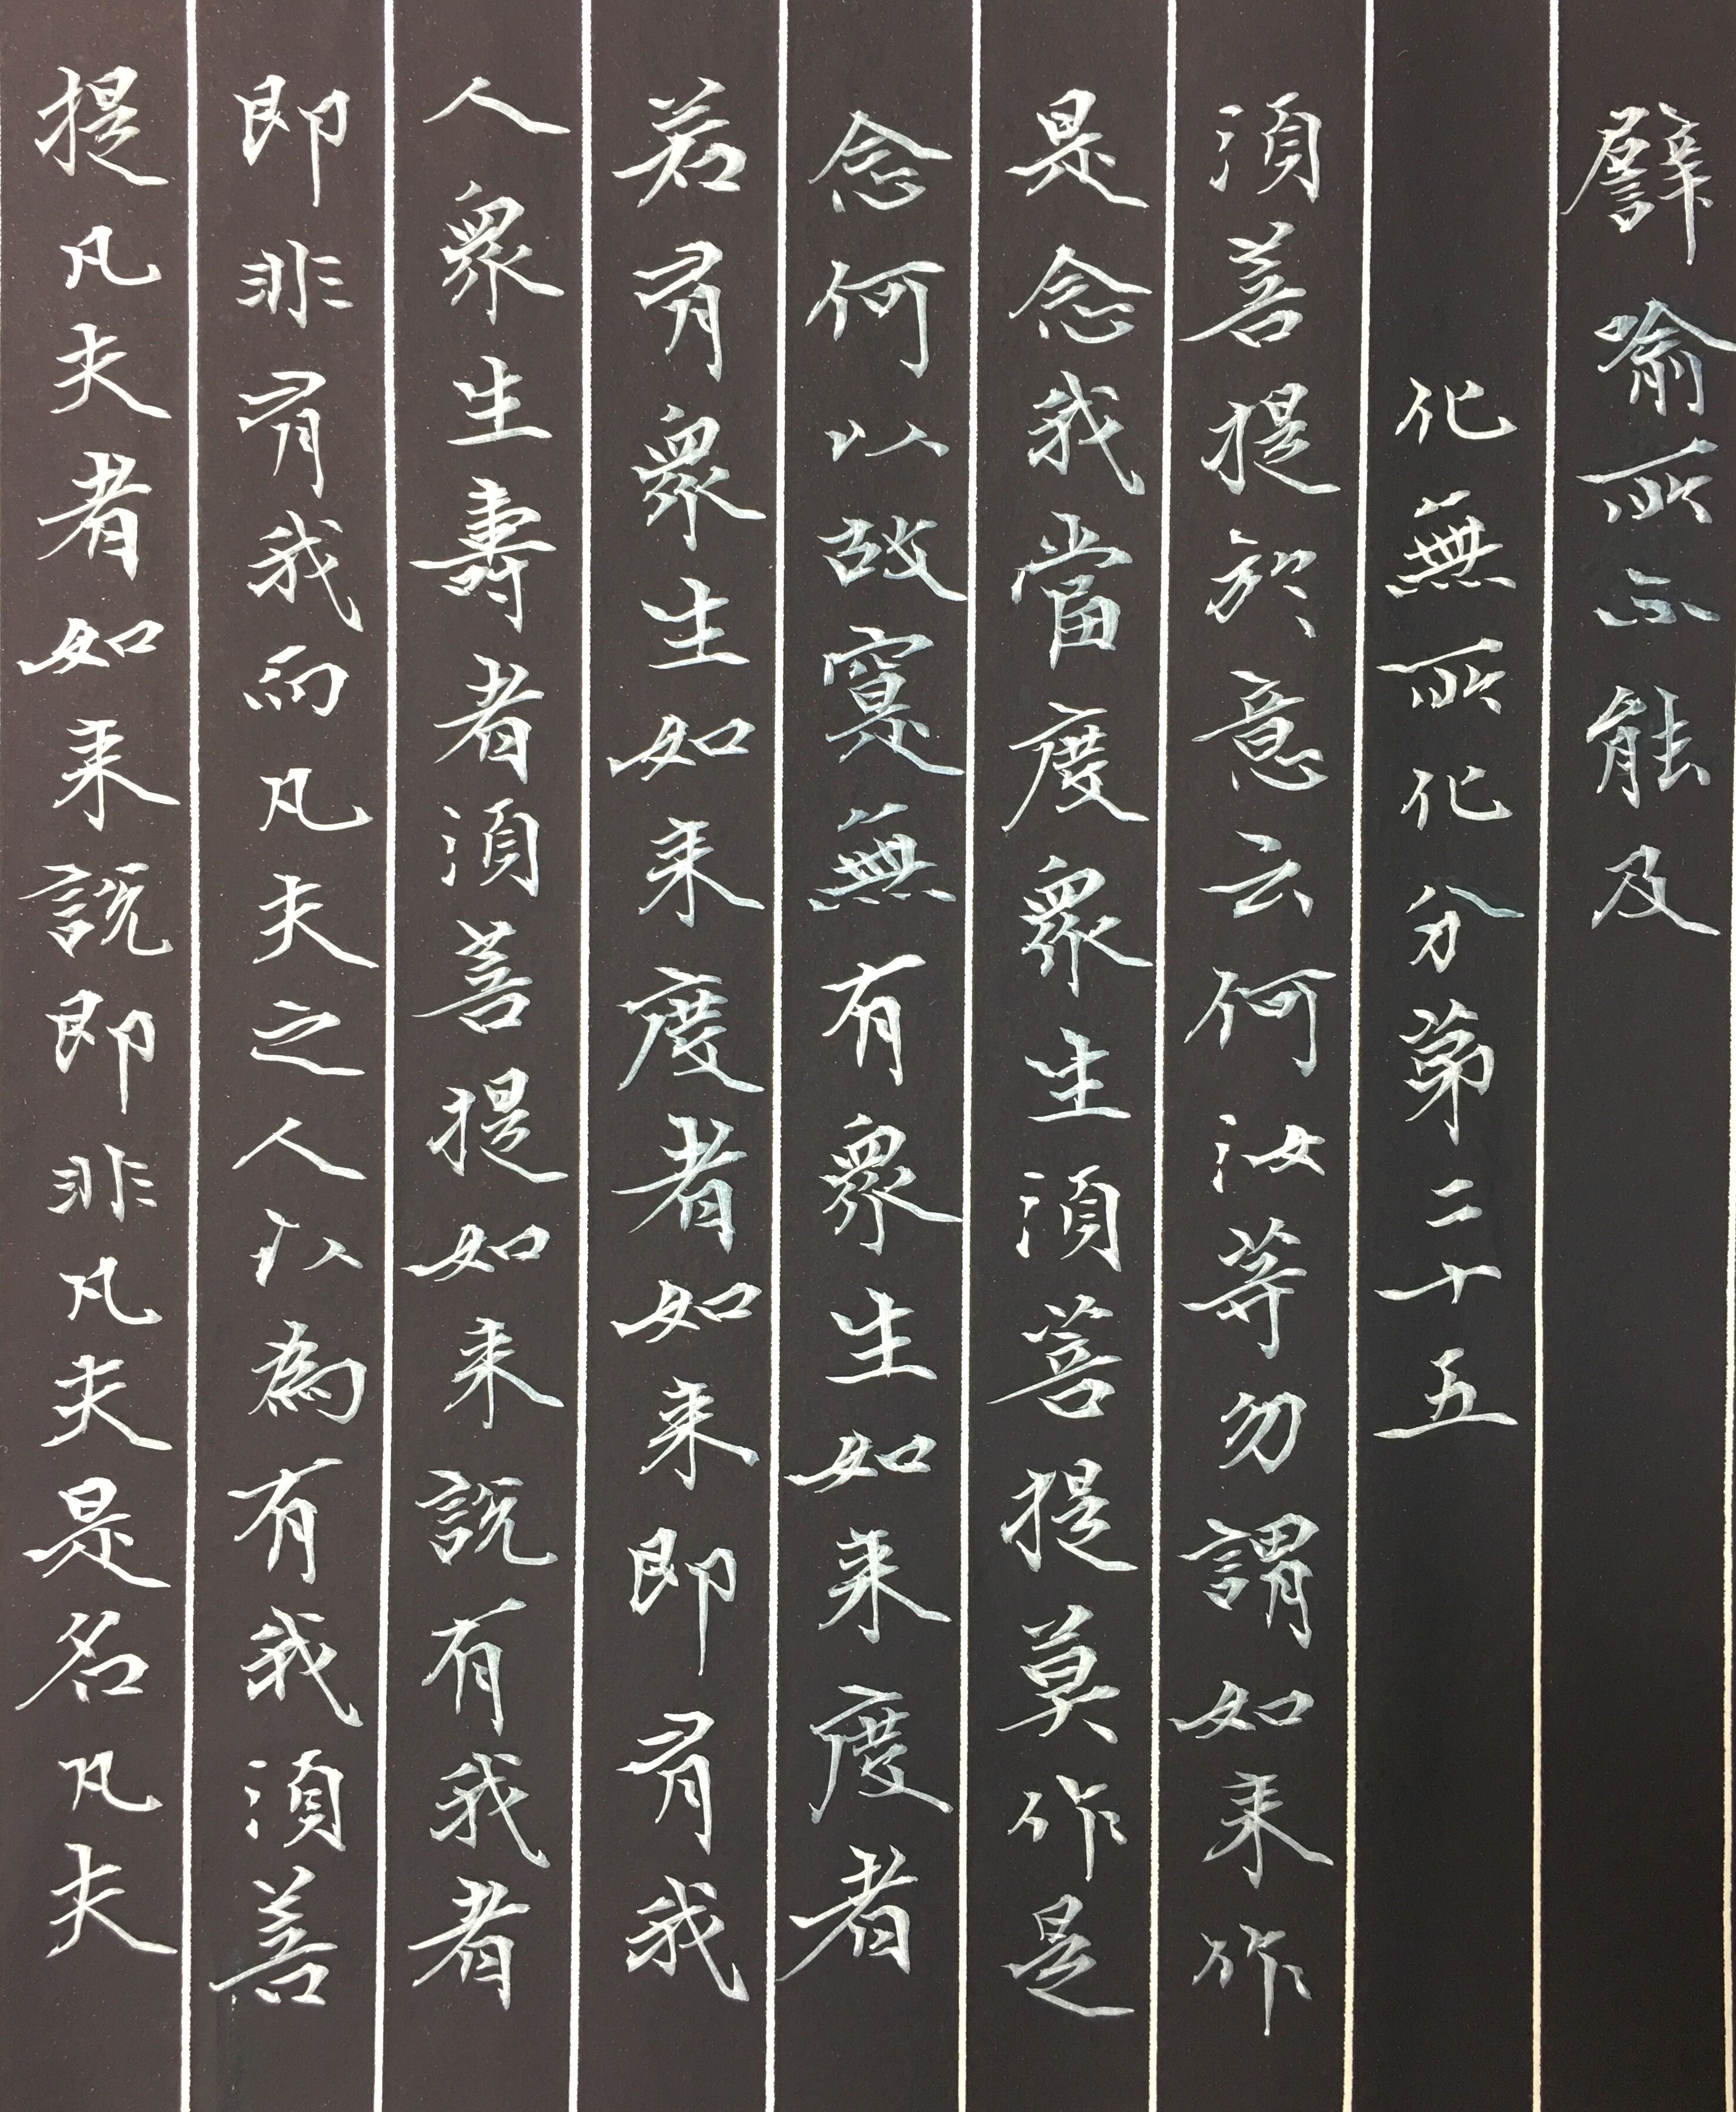 譬喻所不能及
化無所化分第二十五
須菩提於意云何汝等勿謂如来作
是念我當度眾生須菩提莫作是
念何以故寔無有眾生如来度者
若有眾生如来度者如来即有我
人眾生壽者須菩提如来說有我者
即非有我而凡夫之人以為有我須菩
提凡夫者如来說即非凡夫是名凡夫